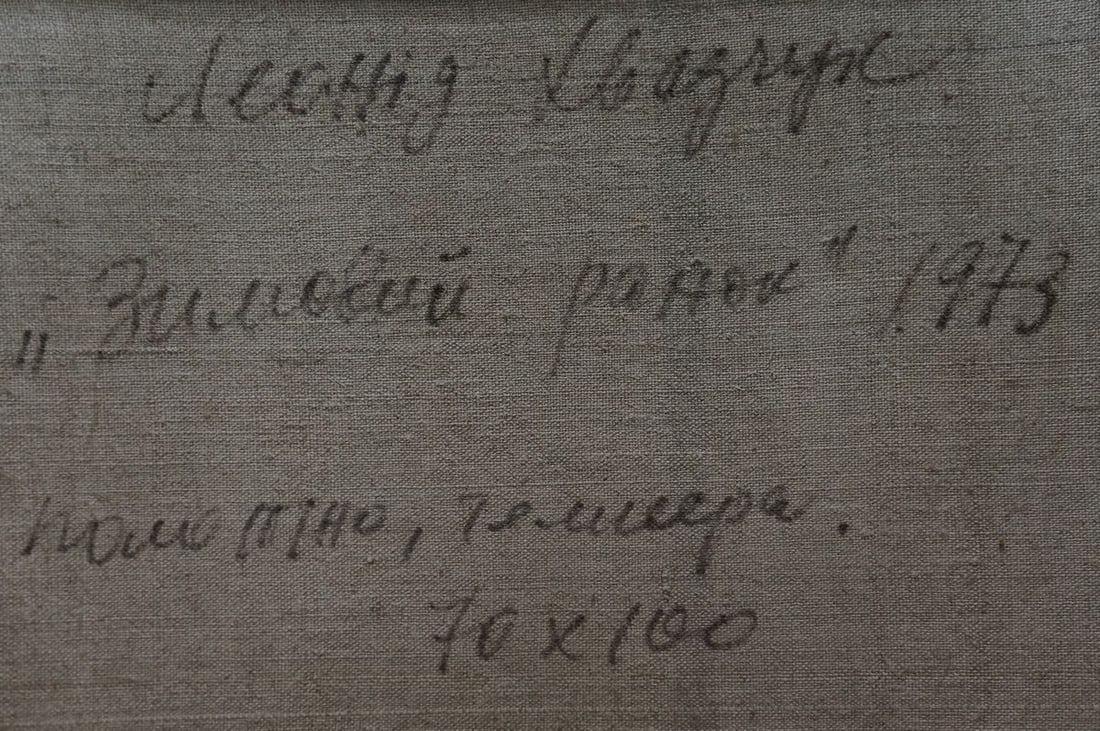 Леонід Хвадчук
„Зимовий ранок" 1973
полотно, темпера.
70 х 100